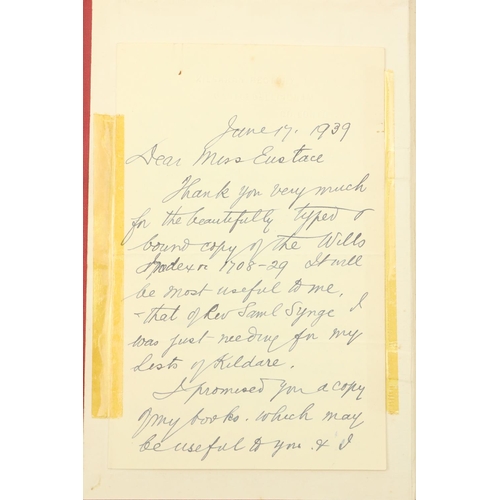 June 17. 1939
Dear Miss Eustace
Thank you very much
for the beautifully typed &
bound copy of the Wills
Index 1708-29 It will
be most useful to me,
- that of Rev Saml Synge I
was just needing for my
Lists of Kildare.
I promised you a copy
of my books. which may
be useful to you. & I